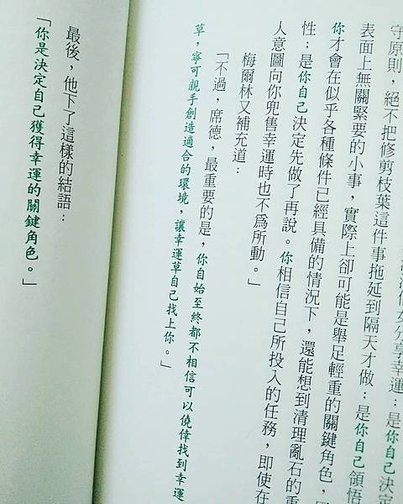 分享幸運：是你自己決定
守原則，絕不把修剪枝葉這件事拖延到隔天才做：是你自己領悟
表面上無關緊要的小事，實際上卻可能是舉足輕重的關鍵角色，
你才會在似乎各種條件已經具備的情況下，還能想到清理亂石的重
性：是你自己決定先做了再說。你相信自己所投入的任務，即使在
人意圖向你兜售幸運時也不為所動。」
梅爾林又補充道：
「不過，席德，最重要的是，你自始至終都不相信可以僥倖找到幸運
草，寧可親手創造適合的環境，讓幸運草自己找上你。」
最後，他下了這樣的結語：
「你是決定自己獲得幸運的關鍵角色。」